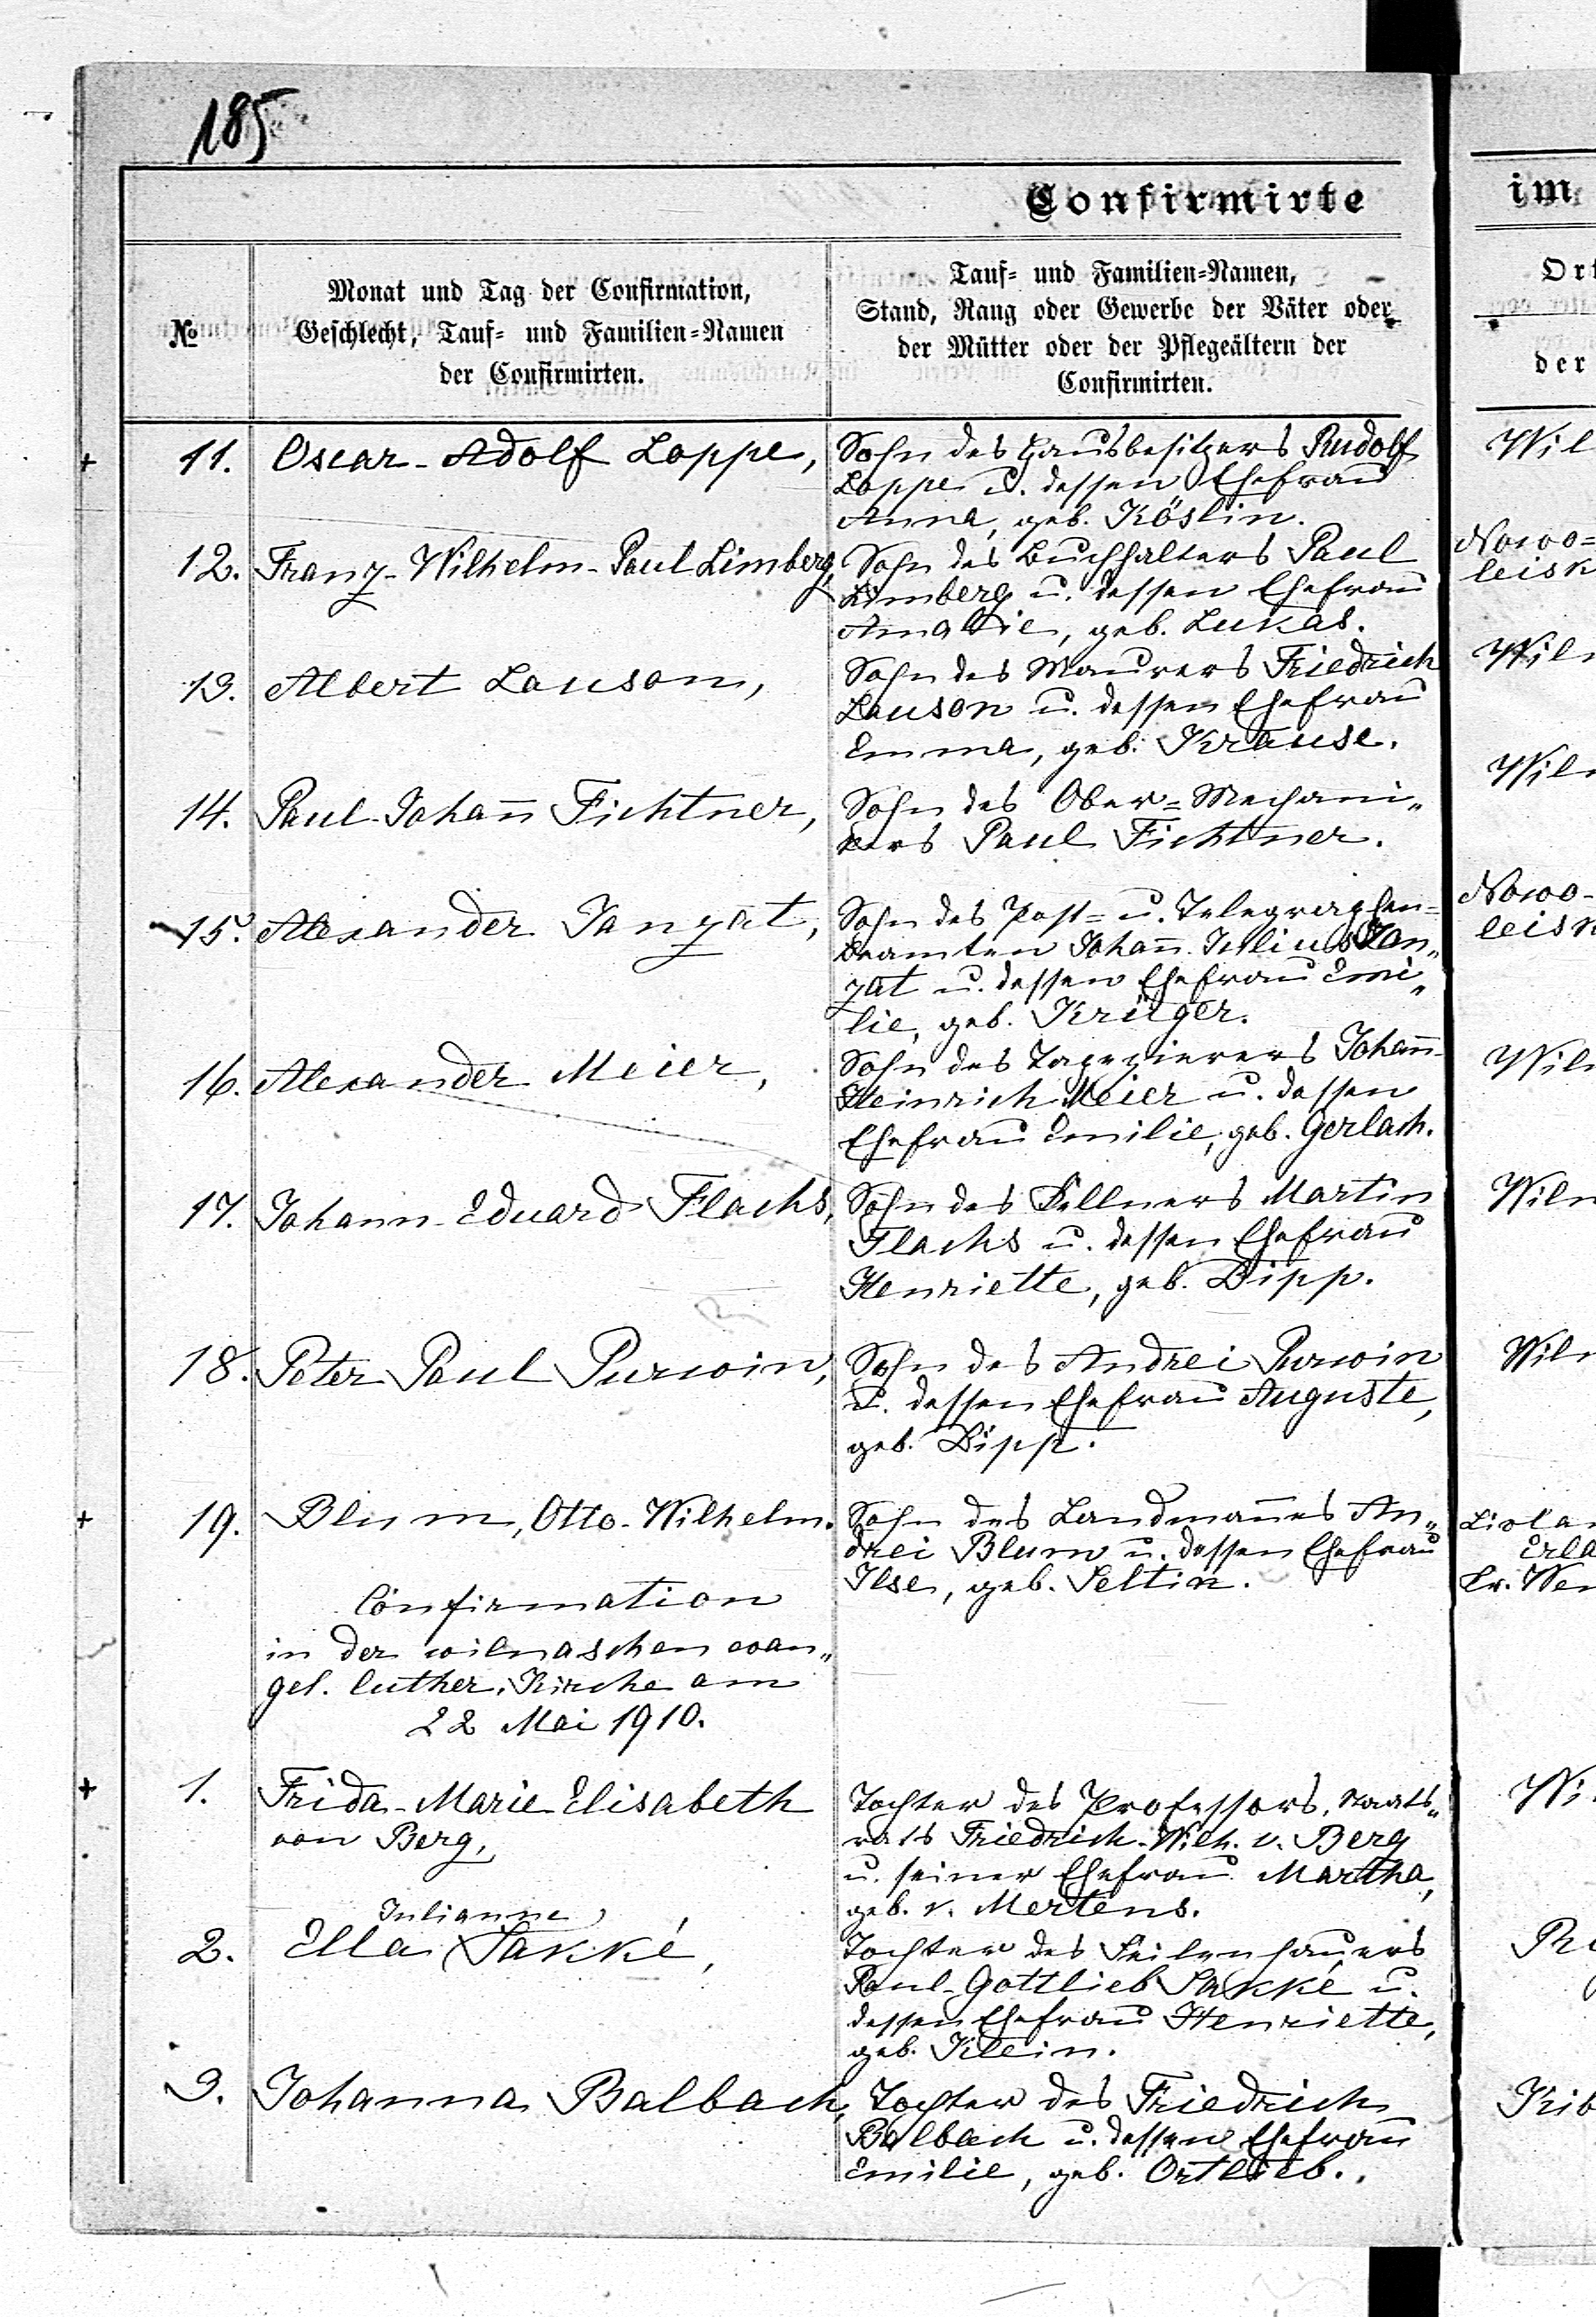 185
Confirmirte
№
Monat und Tag der Confirmation,
Geschlecht, Tauf- und Familien-Namen
der Confirmirten.
Tauf- und Familien-Namen,
Stand, Rang oder Gewerbe der Väter oder
der Mütter oder der Pflegeältern der
Confirmirten.
+ 11. Oscar-Adolf Loppe,
Sohn des Hausbesitzers Rudolf
Loppe u. dessen Ehefrau
Anna, geb. Köslin.
12. Franz-Wilhelm-Paul Limberg,
Sohn des Buchhalters Paul
Limberg u. dessen Ehefrau
Amalie, geb. Lukas.
13. Albert Lauson,
Sohn des Maurers Friedrich
Lauson u. dessen Ehefrau
Emma, geb. Krause.
14. Paul-Johann Fichtner,
Sohn des Ober-Mechani„
kers Paul Fichtner.
15. Alexander Janzat,
Sohn des Post- u. Telegraphen-
beamten Johann Julius Jan„
zat u. dessen Ehefrau Emi„
lie, geb. Krüger.
16. Alexander Meier,
Sohn des Tapezierers Johann-
Heinrich Meier u. dessen
Ehefrau Emilie, geb. Gerlach.
17. Johann-Eduard Flachs,
Sohn des Kellners Martin
Flachs u. dessen Ehefrau
Henriette, geb. Dipp.
18. Peter Paul Purwin,
Sohn des Andrei Purwin
u. dessen Ehefrau Auguste,
geb. Dipp.
+ 19. Blum, Otto-Wilhelm.
Sohn des Landmannes An„
drei Blum u. dessen Ehefrau
Ilse, geb. Seltin.
Confirmation
in der wilnaschen evan„
gel. luther. Kirche am
22 Mai 1910.
+ 1. Frida-Marie Elisabeth
von Berg,
Tochter des Professors, Staats„
rats Friedrich-Wilh. v. Berg
u. seiner Ehefrau Martha,
geb. v. Mertens.
Julianne
2. Ella Sakké,
Tochter des Feilenhauers
Paul-Gottlieb Sakké u.
dessen Ehefrau Henriette,
geb. Klein.
3. Johanna Balbach,
Tochter des Friedrich
Balbach u. dessen Ehefrau
Emilie, geb. Ortlieb.
im
Ort
der
Wil
Nowo-
leisk
Wiln
Wiln
Nowo-
leisk
Wiln
Wiln
Wiln
Livlan
Erla
Kr. Wen
Wi
Kib